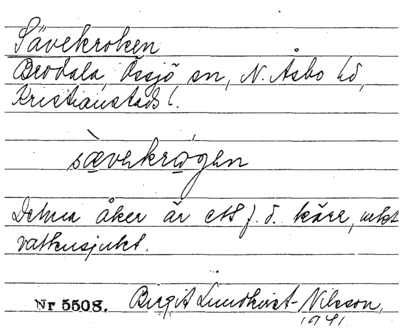 Sävekroken
Brodala, Össjö sn, N. Åsbo hd,
Kristianstads l.
sàvekrógen
Denna åker är ett f. d. kärr, mkt
vattensjukt.
Nr 5508. Birgit Lundkvist-Nilsson,
1941